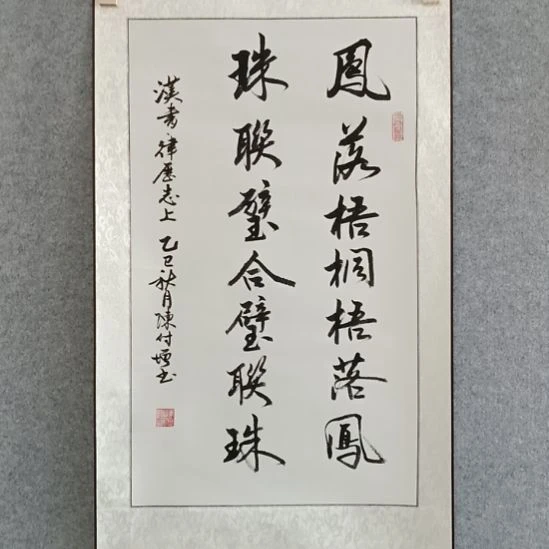 鳳落梧桐梧落鳳
珠聯璧合璧聯珠
漢書律歷志上 乙巳秋月陳付 書